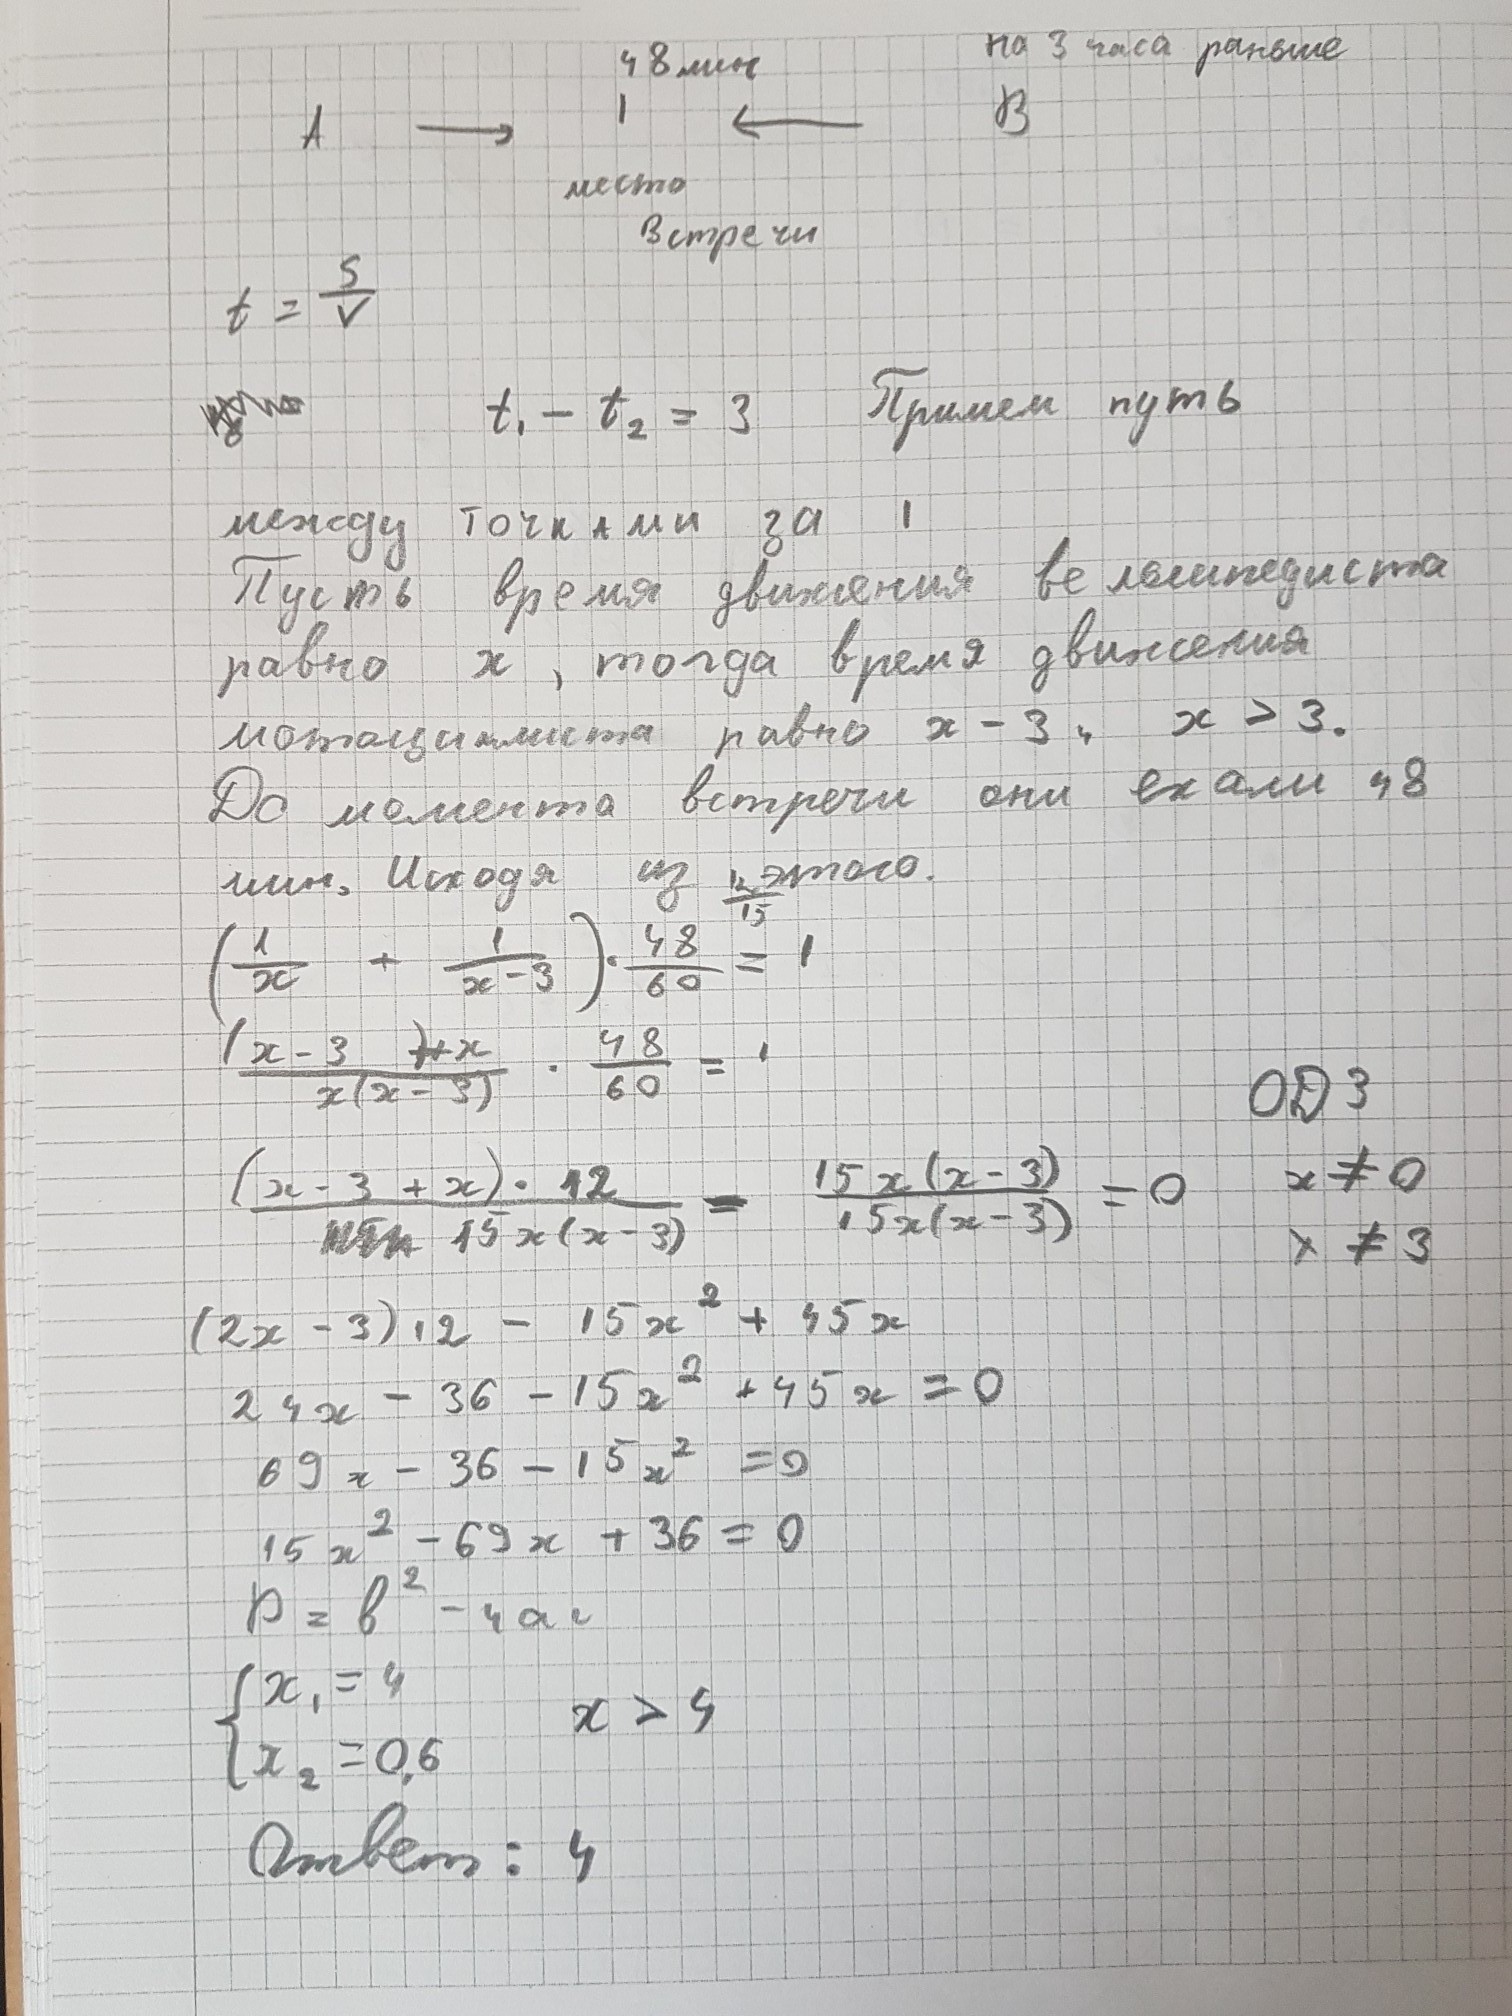 48 мин на 3 часа раньше
A → ← B
место
встречи
t = S/V
t₁ - t₂ = 3 Примем путь
между точками за 1
Пусть время движения велосипедиста
равно x, тогда время движения
мотоциклиста равно x - 3, x > 3.
До момента встречи они ехали 48
мин. Исходя из этого.
12/15
(1/x + 1/(x-3)) · 48/60 = 1
(x-3)+x / x(x-3) · 48/60 = 1
ОДЗ
(x-3+x)·12 / 15x(x-3) - 15x(x-3) / 15x(x-3) = 0 x ≠ 0
x ≠ 3
(2x-3)12 - 15x² + 45x
24x - 36 - 15x² + 45x = 0
69x - 36 - 15x² = 0
15x² - 69x + 36 = 0
D = b² - 4ac
{ x₁ = 4
x > 4
x₂ = 0,6
Ответ: 4